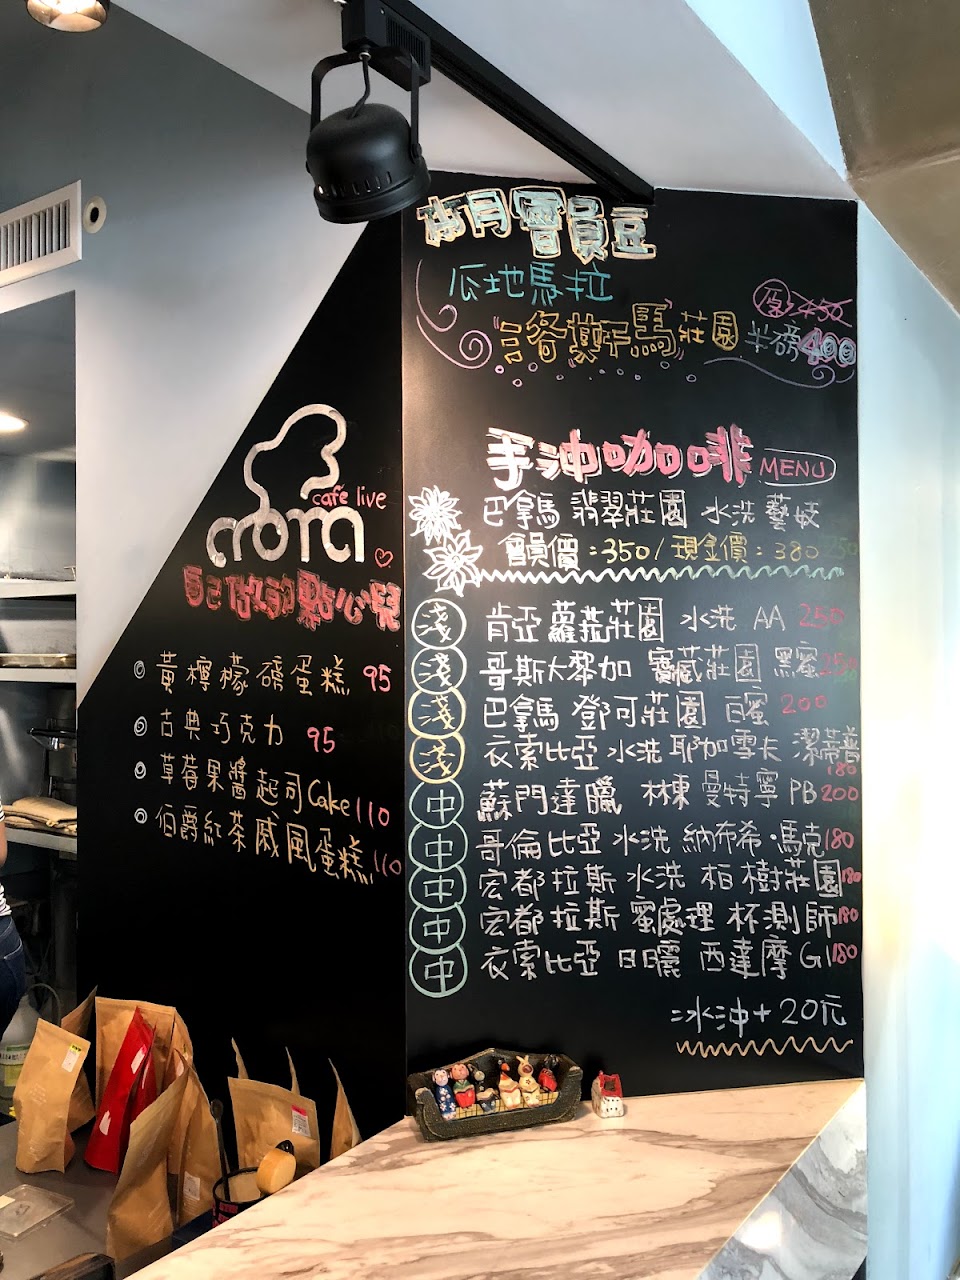 本月會員豆
瓜地馬拉
洛斯馬莊園 半磅400
原450
café live
mojo
自己做的點心兒
黃檸檬磅蛋糕 95
古典巧克力 95
草莓果醬起司Cake 110
伯爵紅茶戚風蛋糕 110
手沖咖啡 MENU
巴拿馬 翡翠莊園 水洗 藝妓
會員價:350/現金價:380
淺 肯亞 蘿莊園 水洗 AA 250
淺 哥斯大黎加 寶藏莊園 黑蜜 250
淺 巴拿馬 鄧可莊園 百蜜 200
淺 衣索比亞 水洗 耶加雪夫 潔蒂普 180
中 蘇門達臘 林東 曼特寧 PB 200
中 哥倫比亞 水洗 納布希·馬克 180
中 宏都拉斯 水洗 柏樹莊園 180
中 宏都拉斯 蜜處理 杯測師 180
中 衣索比亞 日曬 西達摩 G1 180
冰沖+20元